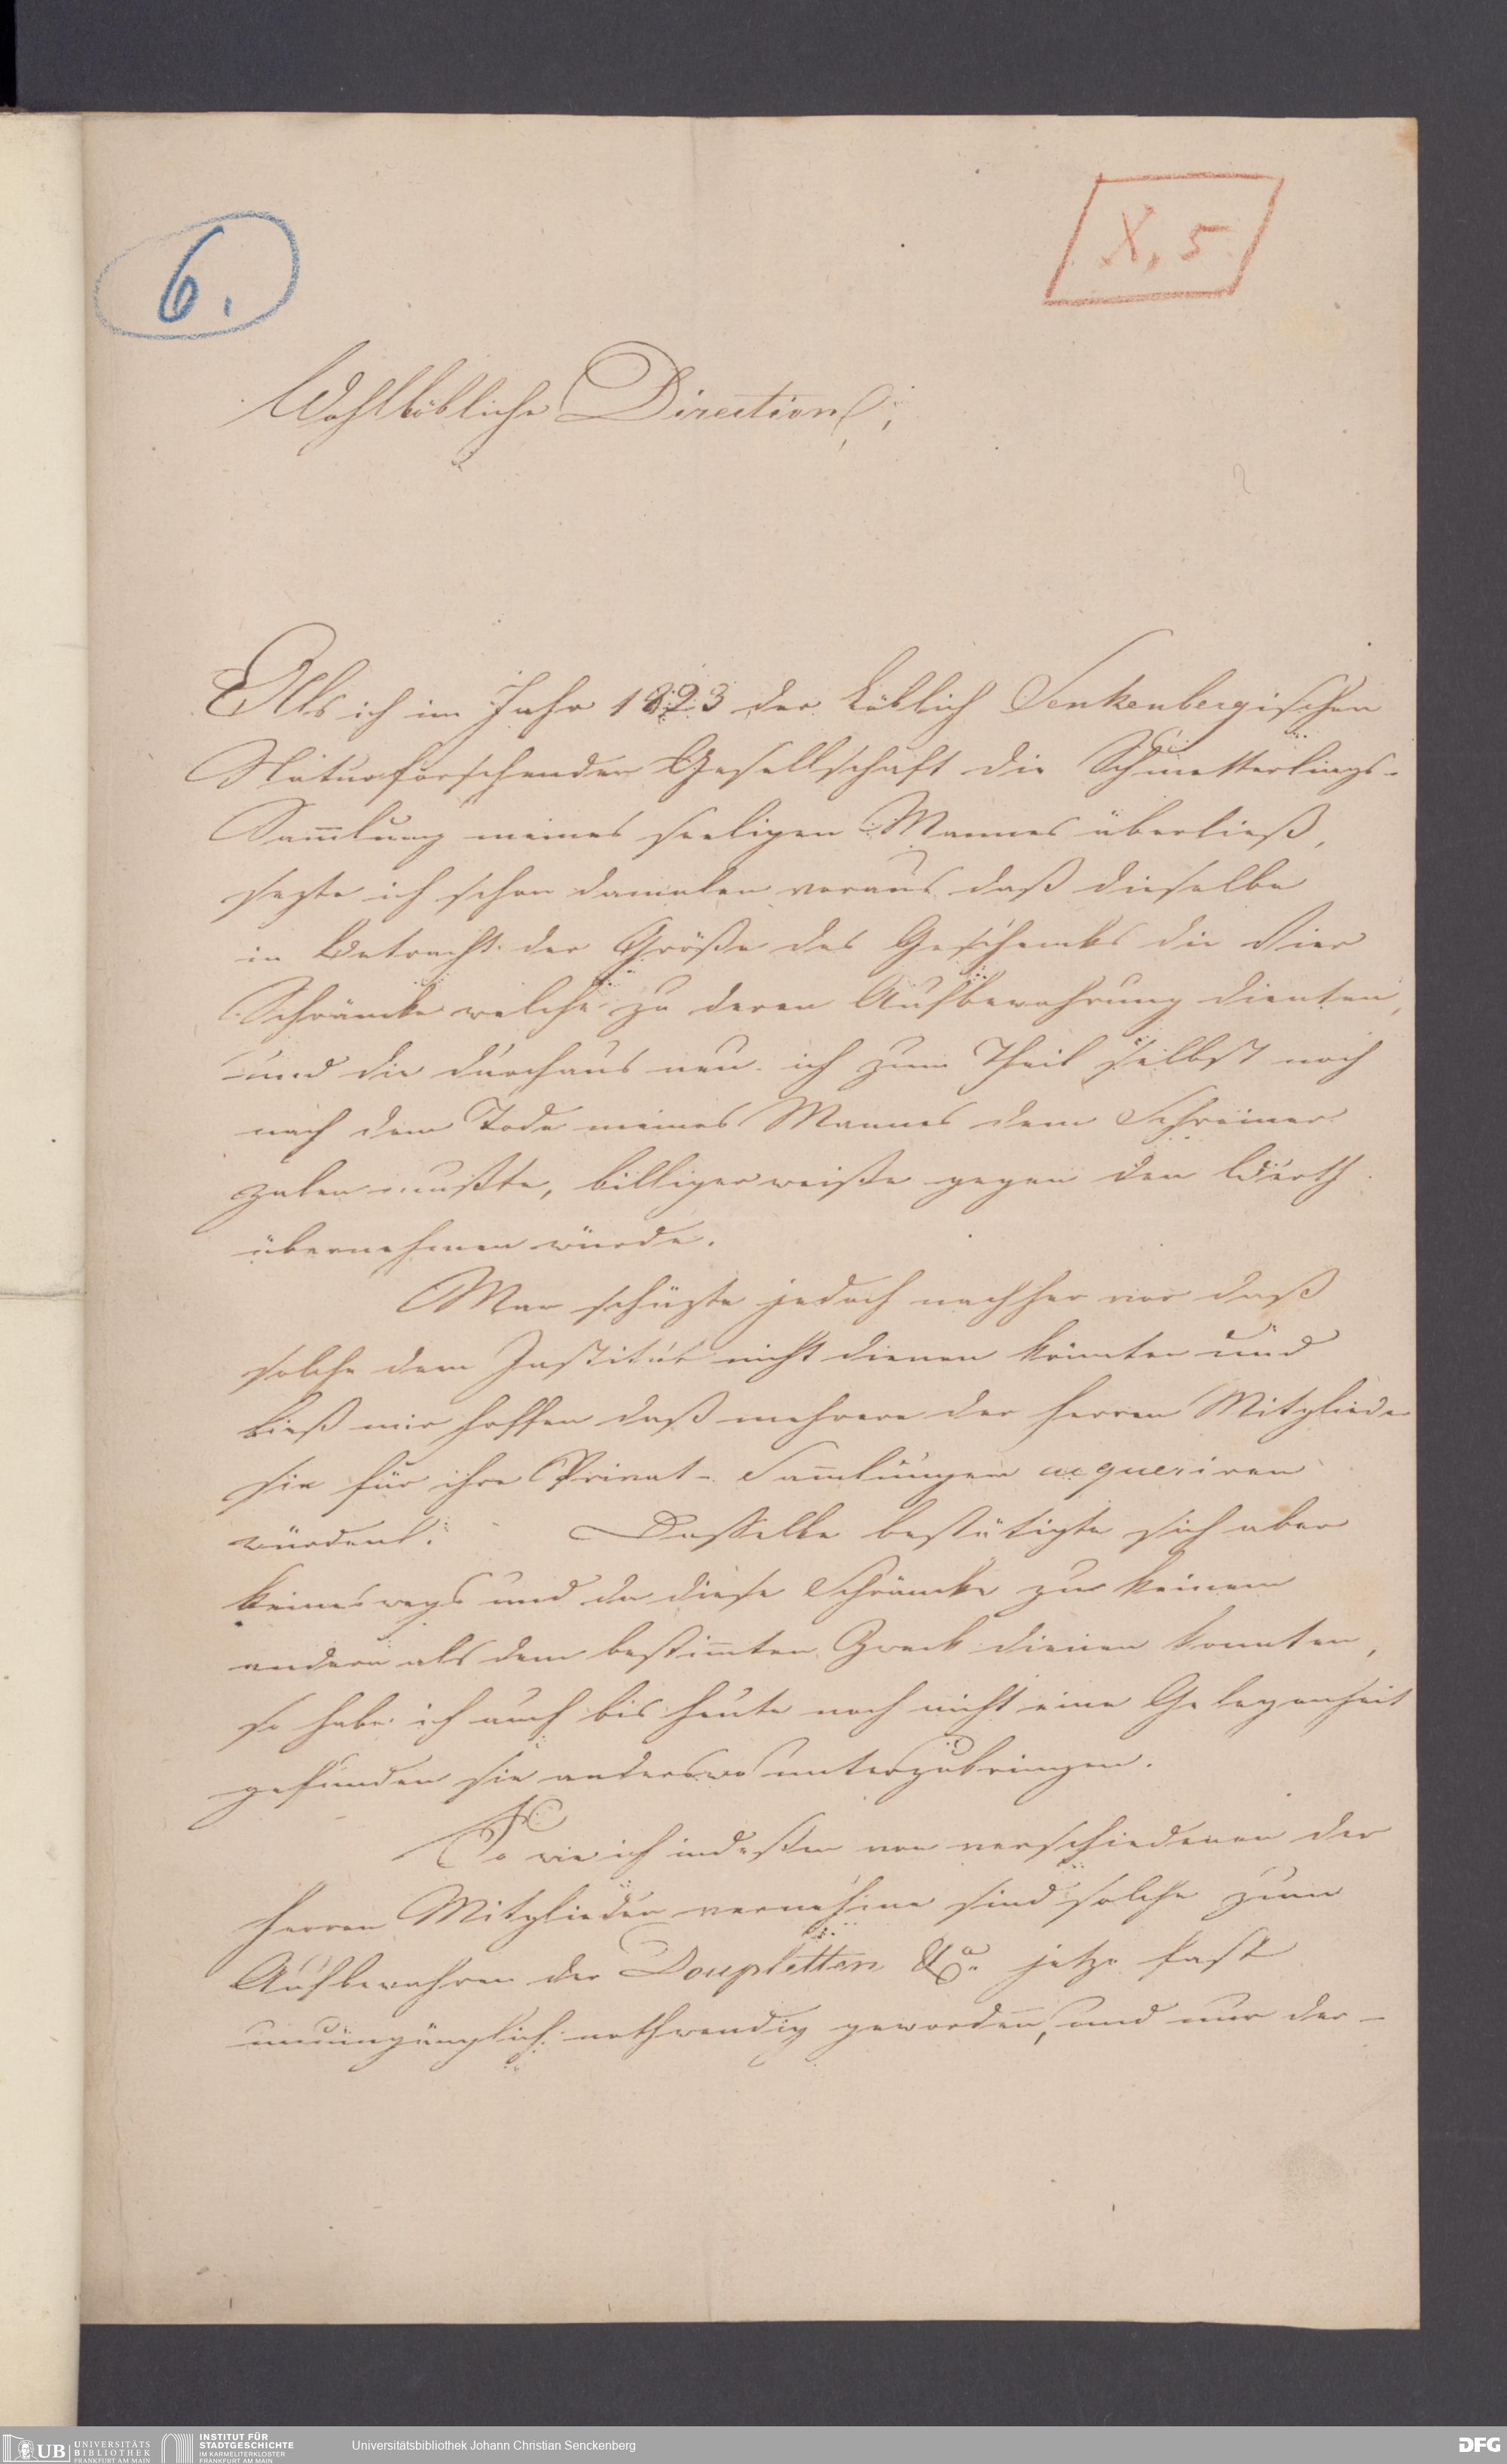 6.
X, 5
Wohllöbliche Direction!
Als ich im Jahr 1823 der Löblich Senkenbergischen
Naturforschenden Gesellschaft die Schmetterlings-
Sam̄lung meines seeligen Mannes überließ,
sezte ich schon damalen voraus daß dieselbe
in Betracht der Größe des Geschenks die Vier
Schräncke welche zu deren Aufbewahrung dienten,
und die durchaus neu ich zum Theil selbst noch
nach dem Tode meines Mannes dem Schreiner
zalen mußte, billigerweiße gegen den Werth
übernehmen würde.
Man schüzte jedoch nachher vor daß
solche dem Institut nicht dienen könnten und
ließ mir hoffen daß mehrere der Herren Mitglieder
sie für ihre Privat-Sam̄lungen acqueriren
würden. Dasselbe bestätigte sich aber
keineswegs und da diese Schräncke zu keinem
andern als dem bestim̄ten Zweck dienen konnten,
so habe ich auch bis heute noch nicht eine Gelegenheit
gefunden sie anderswo unterzubringen.
So wie ich indeßen von verschiedenen der
Herren Mitglieder vernehme sind solche zum
Aufbewahren der Doupletten &a. jetzo fast
unumgänglich nothwendig geworden, und nur der-
UB UNIVERSITÄTS
BIBLIOTHEK
FRANKFURT AM MAIN
INSTITUT FÜR
STADTGESCHICHTE
IM KARMELITERKLOSTER
FRANKFURT AM MAIN
Universitätsbibliothek Johann Christian Senckenberg
DFG